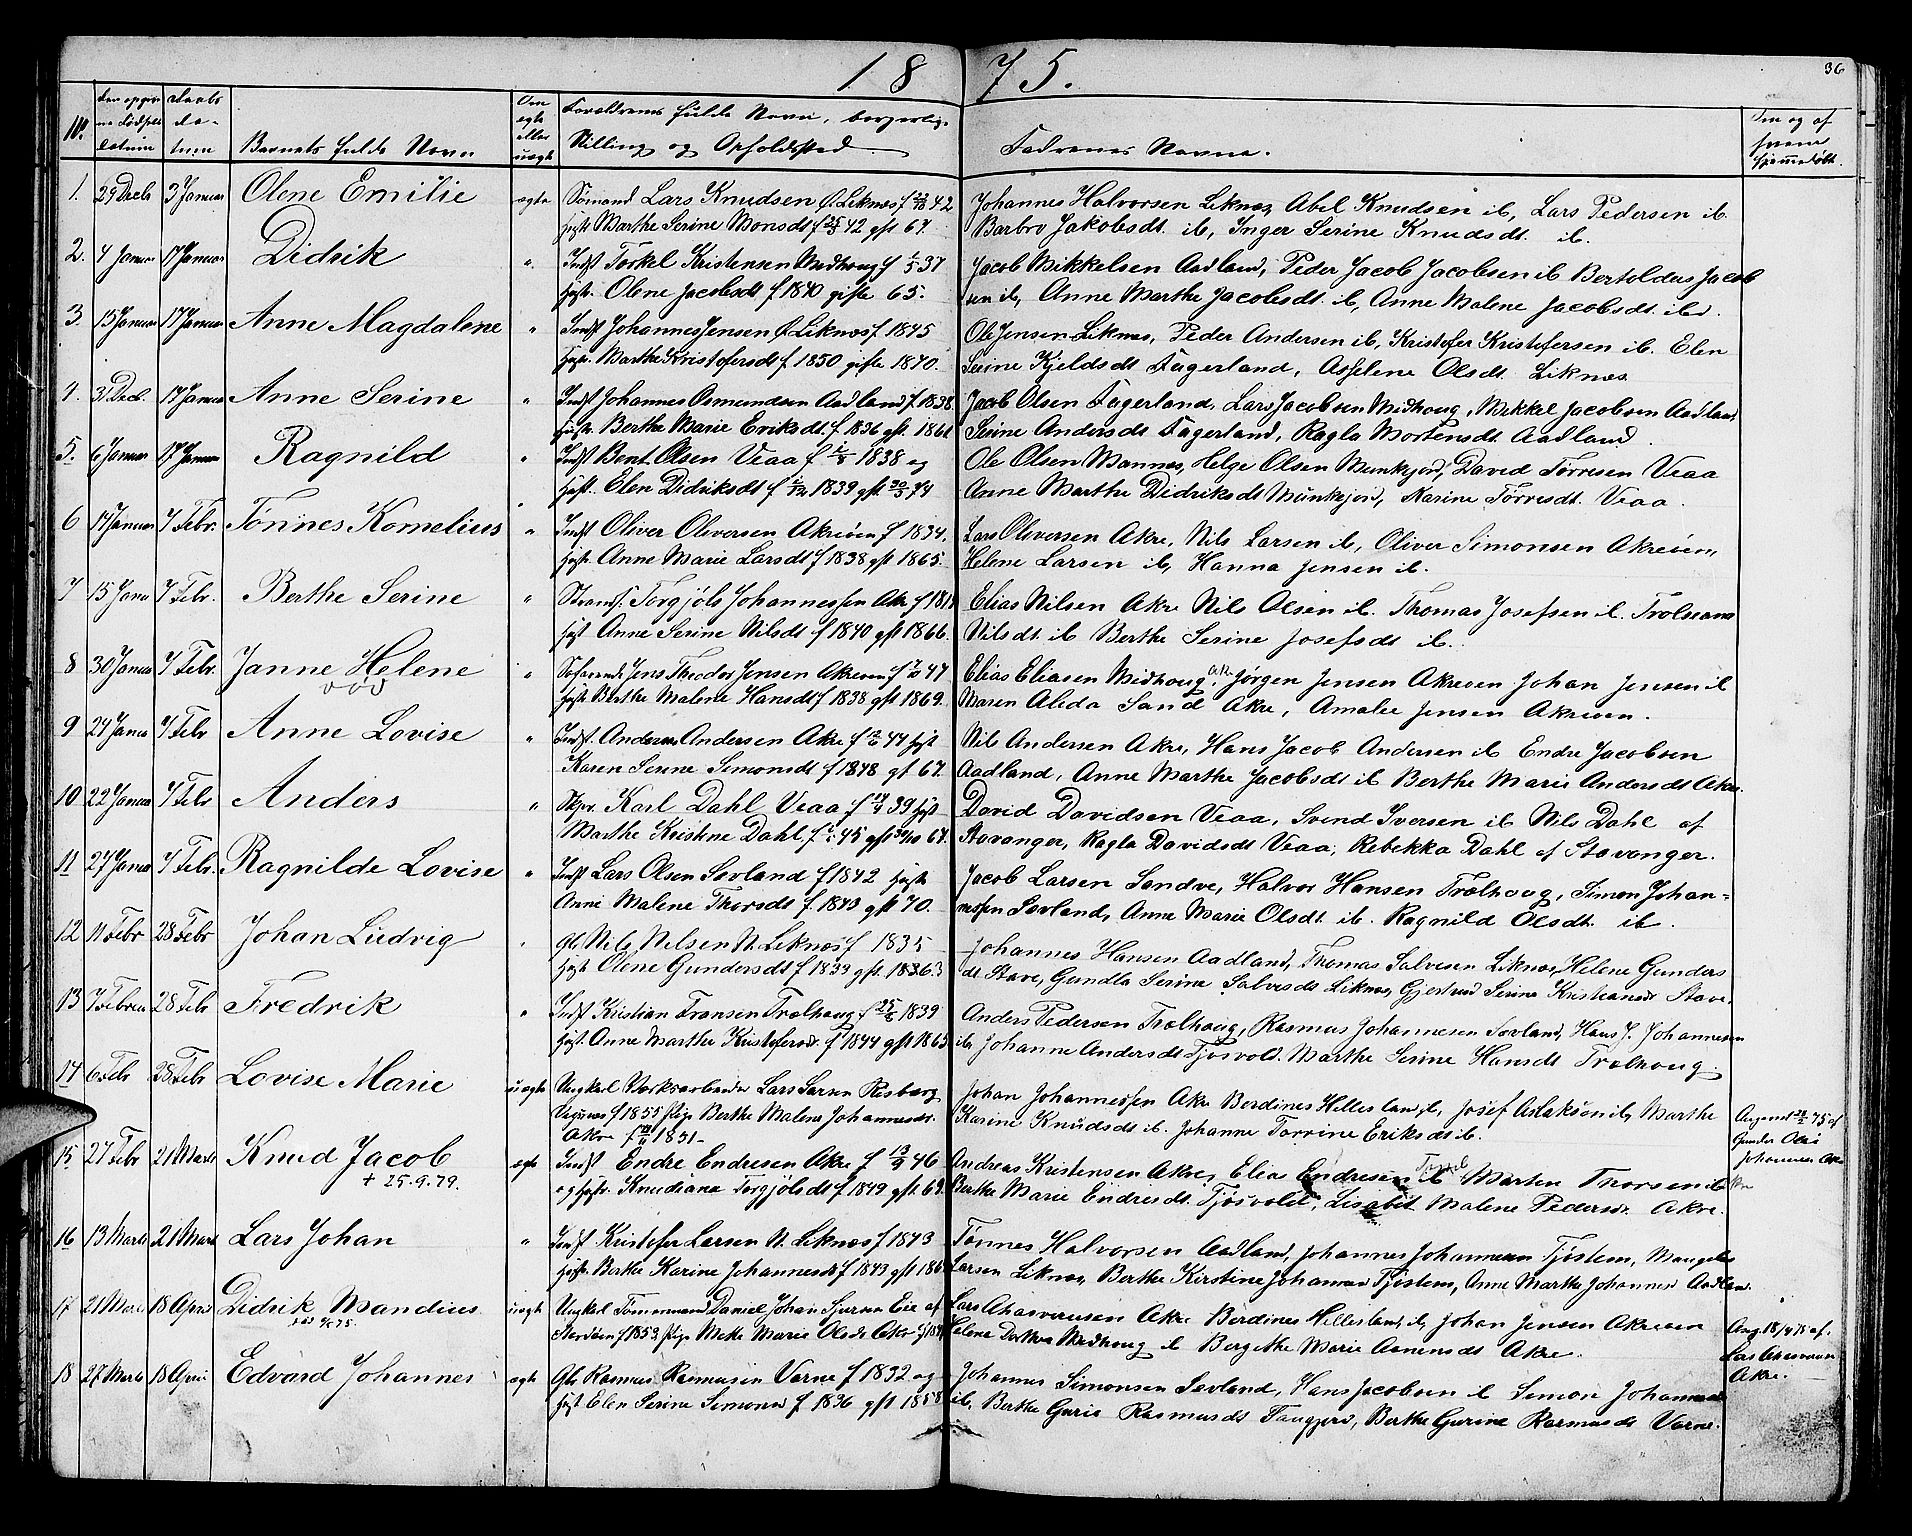 1875.
36
No.
Den opgivne Fødselsdatum
Daabsdatum
Barnets fulde Navn
Om ægte eller uægte
Forældrenes fulde Navn, borgerlig Stilling og Opholdssted
Faddrenes Navne.
Om og af hvem hjemmedøbt.
1. 29 Decb 3 Januar Olene Emilie ægte Sømand Lars Knudsen Ø. Liknes f 42 Johannes Halvorsen Liknes, Abel Knudsen ib, Lars Pedersen ib
Hust Marthe Serine Monsdt f 42 gft 67. Barbro Jakobsdt. ib, Inger Serine Knudsdt. ib.
2. 4 Januar 17 Januar Didrik " Indst Torkel Kristensen Midhoug f 37 Jacob Mikkelsen Aadland, Peder Jacob Jacobsen ib Bertoldus Jacob
Hust. Olene Jacobsdt f 1840 gifte 65. sen ib, Anne Marthe Jacobsdt ib, Anne Malene Jacobsdt ibd.
3. 15 Januar 17 Januar Anne Magdalene " Indst Johannes Jensen Ø. Liknes f 1845 Ole Jensen Liknes, Peder Andersen ib, Kristofer Kristofersen ib. Elen
Hust. Marthe Kristofersdt f 1850 gifte 1870. Serine Kjeldsdt Fagerland, Asselene Olsdt. Liknes
4. 31 Dec. 17 Januar Anne Serine " Indst Johannes Osmundsen Aadland f. 1838. Jacob Olsen Fagerland, Lars Jacobsen Midhoug, Mikkel Jacobsen Aadland
Hust. Berthe Marie Eriksdt f 1836 gft. 1861 Serine Andersdt Fagerland, Ragla Mortensdt. Aadland.
5. 6 Januar 17 Januar Ragnild " Indst Bent Olsen Veaa f 1838 og Ole Olsen Mannes, Helge Olsen Munkejord, David Torresen Veaa
Hust. Elen Didriksdt f 1839 gft 30/5 74 Anne Marthe Didriksdt Munkejord, Karine Torresdt. Veaa.
6 14 Januar 7 Febr. Tønnes Kornelius " Indst Oliver Oliversen Akreøen f 1834. Lars Oliversen Akre, Nils Larsen ib, Oliver Simonsen Akreøen,
Hust. Anne Marie Larsdt f 1838 gft 1865. Helene Larsen ib, Hanna Jensen ib.
7 15 Janu 7 Febr. Berthe Serine " Strands. Torgjøls Johannessen Akre f 18 Elias Nilsen Akre Nils Olsen ib. Thomas Josefsen ib
Hust Anne Serine Nilsdt f 1840 gft 1866. Nilsdt. ib Berthe Serine Josefsdt ib.
8 30 Januar 7 Febr. Janne Helene " Jens Theodor Jensen Akreøen f 47 Elias Eliasen Midhoug, Jørgen Jensen Akreøen Johan Jensen ib
død Hust Berthe Malene Hansdt f 1838 gft 1869. Maren Alida Sand Akre, Amalie Jensen Akreøen.
9 24 Janu 7 Febr Anne Lovise " Indst. Anders Andersen Akre f 44 Hust Nils Andersen Akre, Hans Jacob Andersen ib Endre Jacobsen
Karen Serine Simonsdt f 1848 gf 67. Aadland, Anne Marthe Jacobsdt ib Berthe Marie Andersdt Akre.
10 22 Januar 7 Febr Anders " Skpr. Karl Dahl Veaa f 39 Hust David Davidsen Veaa, Svend Iversen ib Nils Dahl af
Marthe Kristene Dahl f 45 gft 67. Stavanger, Ragla Davidsdt Veaa, Rebekka Dahl af Stavanger.
11 27 Januar 7 Febr. Ragnilde Lovise " Indst Lars Olsen Søvland f 1842 Hust Jacob Larsen Sandve, Halvor Hansen Trælhoug, Simon Johan-
Anne Malene Thorsdt f. 1843 gft 70. nessen Søvland, Anne Marie Olsdt. ib. Ragnild Olsdt. ib.
12 11 Febr 28 Febr Johan Ludvig " Gb Nils Nilsen N. Liknes f 1835 Johannes Hansen Aadland, Thomas Salvesen Liknes, Helene Gunders
Hust Olene Gundersdt f 1839 gft 1863 dt Stave, Gundla Serine Salvesdt Liknes, Gjertrud Serine Kristiansdt Stave.
13 7 Februar 28 Febr Fredrik " Indst Kristian Fransen Trælhoug f 25/6 1839 Anders Pedersen Trælhoug, Rasmus Johannesen Søvland, Hans J. Johannesen
Hust. Anne Marthe Kristofersdt. f 1844 gft 1865 ib, Johanne Andersdt Tjøsvold. Marthe Serine Hansdt Trælhoug.
14 6 Febr 28 Febr Lovise Marie uægte Ungkarl Verksarbeider Lars Larsen Risberg Johan Johannessen Akre Berdines Hillesland ib, Josef Aslaksøn ib, Marthe
Vigsnes f 1855 Pige Berthe Malene Johannesdt. Karine Knudsdt ib. Johanne Torrine Eriksdt ib.
Akre f 1851-
Angivet 75 af
Gunder Olai
Johannesen Ak
re
15 27 Febr 21 Marts Knud Jacob ægte Indst Endre Endresen Akre f 13/9 46 Andreas Kristensen Akre, Elias Endresen ib Martin Thorsen ib
+ 25.9.79. og Hust. Knudiana Torgjølsdt f 1849 gft. 69. Berthe Marie Endresdt Tjøsvold, Lisabet Malene Pedersdt. Akre.
16 13 Marts 21 Marts Lars Johan " Indst Kristofer Larsen N. Liknes f 1843 Tønnes Halvorsen Aadland, Johannes Johannessen Tjøstem, Mangela
Hust. Berthe Karine Johannesdt f 1843 gft 186 Larsen Liknes, Berthe Kirstine Johannesdt Tjøstem, Anne Marthe Johannesdt Aadland.
17 21 Marts 18 April Didrik Mandius uægte Ungkarl Tømmermand Daniel Johan Sjursen Eie af Lars Ahasverusen Akre Berdines Hillesland ib, Johan Jensen Akreøen
død 75. Nordøen f 1853. Pige Mette Marie Olsdt Akre f 18 Helene Dorthea Midhoug ib Bergithe Marie Aanensdt Akre.
Ang. 18/4 75 af.
Lars Ahasverusen
Akre.
18 27 Marts 18 April Edvard Johannes ægte Gb. Rasmus Rasmusen Varne f 1832 og Johannes Simonsen Søvland, Hans Jacobsen ib Simon Johannesen
Hust Elen Serine Simonsdt f 1836 gft 1858 ib, Berthe Gurie Rasmusdt Tangjerd, Berthe Gurine Rasmusdt Varne.